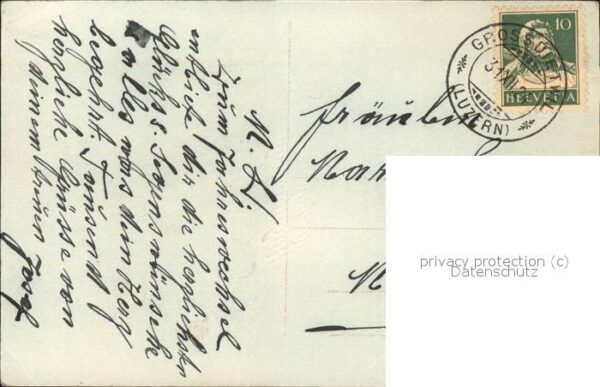 M. L.
Zum Jahreswechsel
entbiete dir die herzlichsten
Glücks & Segenswünsche
& alles was dein Herz
begehrt. Tausend
herzliche Grüsse von
deinem treuen Josef
Fräulein
10
HELVETIA
GROSSDIETWIL
(LUZERN)
31.XII.
privacy protection (c)
Datenschutz